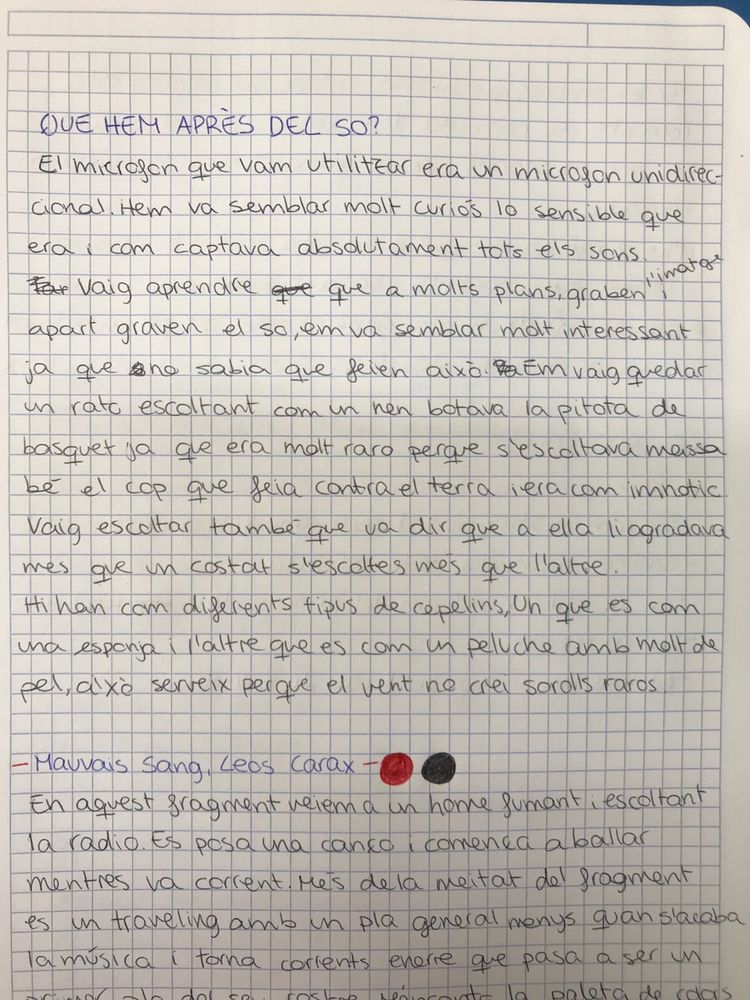 QUE HEM APRÈS DEL SO?
El microfon que vam utilitzar era un microfon unidirec-
cional. Hem va semblar molt curiós lo sensible que
era i com captava absolutament tots els sons.
Vaig aprendre que a molts plans, graben l'imatge i
apart graven el so, em va semblar molt interessant
ja que no sabia que feien això. Em vaig quedar
un rato escoltant com un nen botava la pilota de
basquet ja que era molt raro perque s'escoltava massa
bé el cop que feia contra el terra i era com imnotic.
Vaig escoltar també que va dir que a ella li agradava
mes que un costat s'escoltes més que l'altre.
Hi han com diferents tipus de cepelins, Un que es com
una esponja i l'altre que es com un peluche amb molt de
pel, això serveix perque el vent no crei sorolls raros.
- Mauvais Sang, Leos Carax -
En aquest fragment veiem a un home fumant i escoltant
la radio. Es posa una canço i comença a ballar
mentres va corrent. Més de la meitat del fragment
es un traveling amb un pla general menys quan s'acaba
la música i torna corrents enerre que pasa a ser un
primer pla del seu rostre la paleta de colors